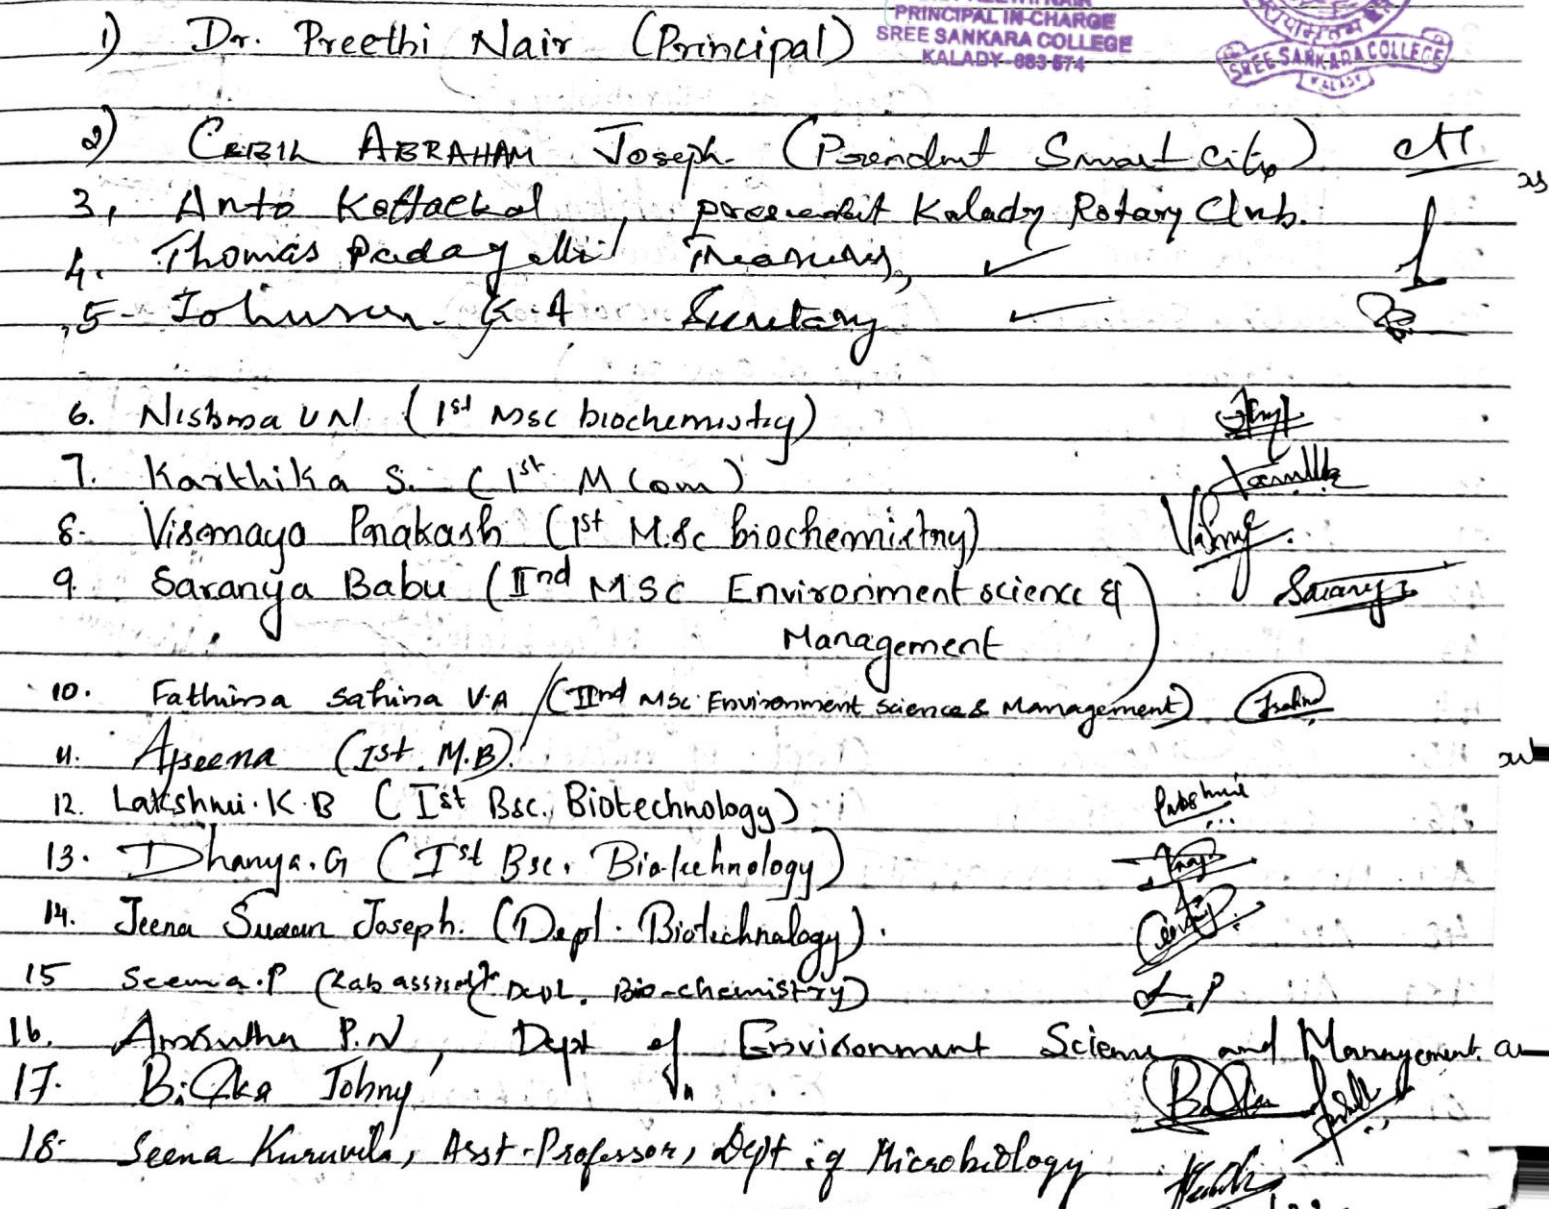 PRINCIPAL IN-CHARGE
SREE SANKARA COLLEGE
KALADY-683 574
SREE SANKARA COLLEGE
KALADY
1) Dr. Preethi Nair (Principal)
2) ABRAHAM Joseph. (President Smart City)
3, Anto Kottackal, president Kalady Rotary Club.
4. Thomas Treasurer,
5- Johnson. K.A Secretary
6. Nishma U N (1st Msc biochemistry)
7. Karthika S. (1st M Com)
8. Vismaya Prakash (1st M.Sc biochemistry)
9. Saranya Babu (IInd MSC Environment science &
Management)
Saranya
10. Fathima Sahina V.A (IInd Msc Environment Science & Management)
11. Afseena (Ist. M.B)
12. Lakshmi.K.B (Ist Bsc. Biotechnology)
13. Dhanya.G (Ist Bsc. Biotechnology)
14. Jeena Susan Joseph. (Dept. Biotechnology).
15 Seema.P (Lab assist Dept. Bio-chemistry)
16. P.N, Dept of Environment Science and Management.
17. Johny
18. Seena Kuruvila, Asst-Professor, Dept of Microbiology